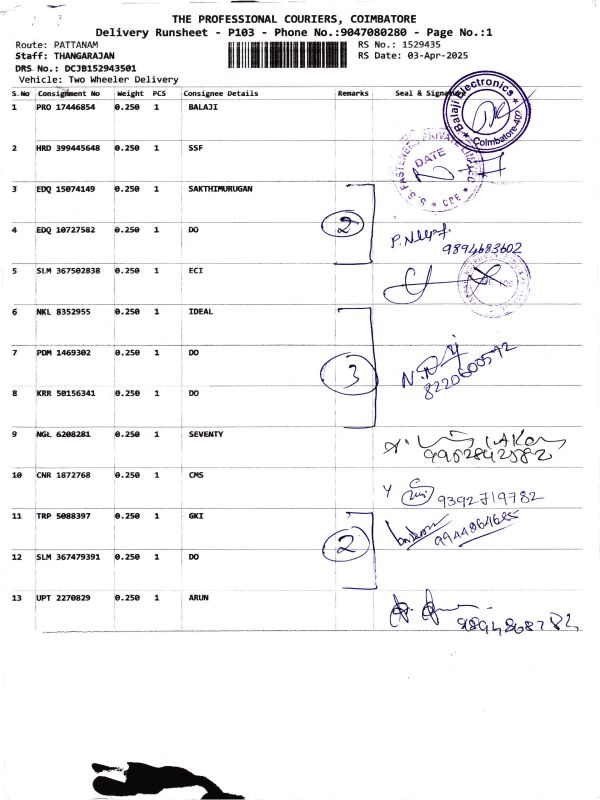 THE PROFESSIONAL COURIERS, COIMBATORE
Delivery Runsheet - P103 - Phone No.:9047080280 - Page No.:1
Route: PATTANAM RS No.: 1529435
Staff: THANGARAJAN RS Date: 03-Apr-2025
DRS No.: DCJB152943501
Vehicle: Two Wheeler Delivery
S.No Consignment No Weight PCS Consignee Details Remarks Seal & Signature
1 PRO 17446854 0.250 1 BALAJI
Balaji Electronics Coimbatore-402
2 HRD 399445648 0.250 1 SSF
S. S. FASTENERS PRIVATE LIMITED DATE CBE
3 EDQ 15074149 0.250 1 SAKTHIMURUGAN
2
4 EDQ 10727582 0.250 1 DO
9894683602
5 SLM 367502838 0.250 1 ECI
6 NKL 8352955 0.250 1 IDEAL
7 PDM 1469302 0.250 1 DO
3
8220600592
8 KRR 50156341 0.250 1 DO
9 NGL 6208281 0.250 1 SEVENTY
9962842582
10 CNR 1872768 0.250 1 CMS
9392719782
11 TRP 5088397 0.250 1 GKI
9944864685
2
12 SLM 367479391 0.250 1 DO
13 UPT 2270829 0.250 1 ARUN
9894868782